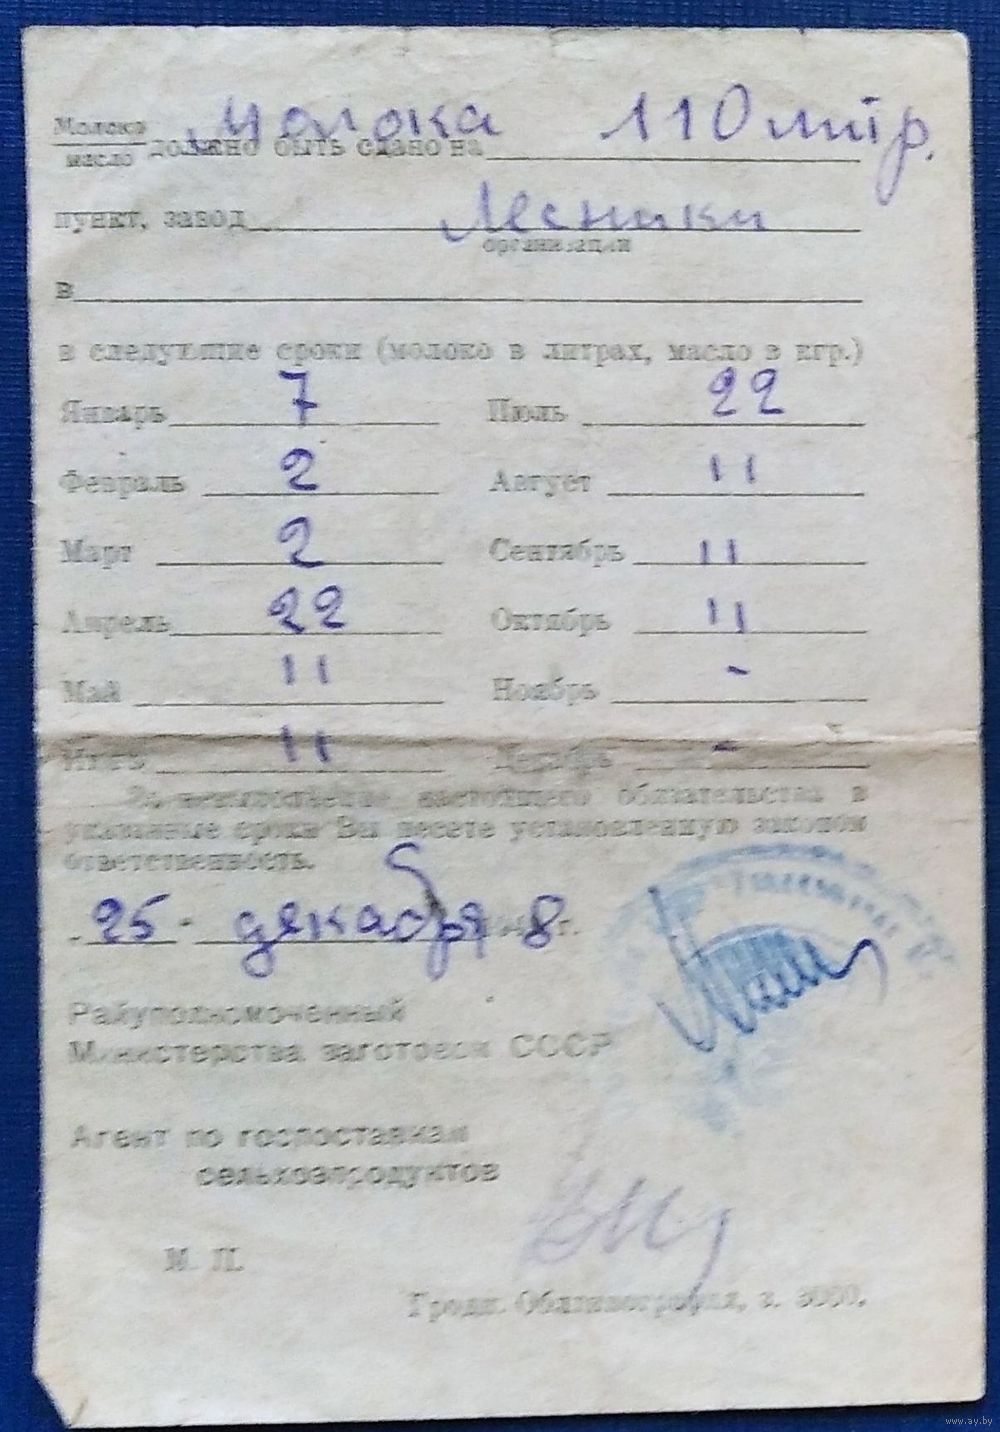 Молоко молока 110 литр.
масло должно быть сдано на
пункт, завод Лесники
организации
в
в следующие сроки (молоко в литрах, масло в кгр.)
Январь 7 Июль 22
Февраль 2 Август 11
Март 2 Сентябрь 11
Апрель 22 Октябрь 11
Май 11 Ноябрь -
Июнь 11 Декабрь -
За невыполнение настоящего обязательства в
указанные сроки Вы несете установленную законом
ответственность.
25 - декабря 194 8 г.
Райуполномоченный
Министерства заготовок СССР
Агент по госпоставкам
сельхозпродуктов
М. П.
Гродн. Облтипография, з. 3000.
www.ay.by